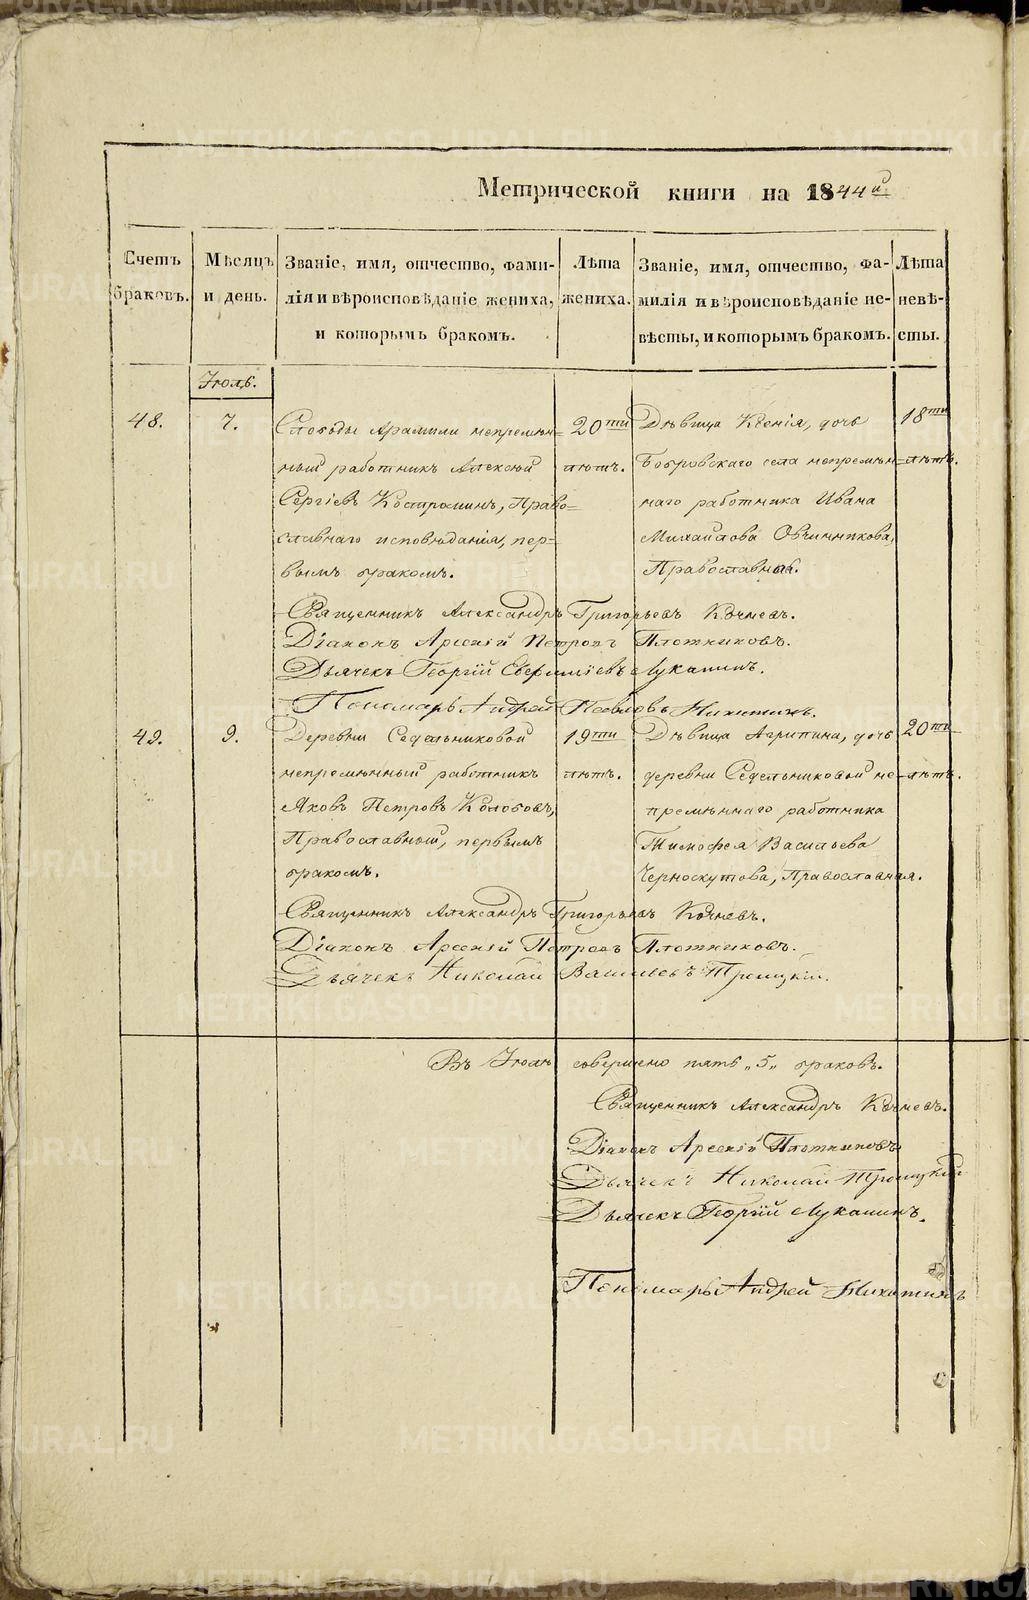 Метрической книги на 1844й
Счетъ браковъ.
Мѣсяцъ и день.
Званіе, имя, отчество, фами-
лія и вѣроисповѣданіе жениха,
и которымъ бракомъ.
Лѣта
жениха.
Званіе, имя, отчество, фа-
милія и вѣроисповѣданіе не-
вѣсты, и которымъ бракомъ.
Лѣта
невѣ-
сты.
Іюль.
48.
7.
Слободы Арамили непремѣн-
ный работникъ Алексѣй
Сергіевъ Костроминъ, Право-
славнаго исповѣданія, пер-
вымъ бракомъ.
20ти
лѣтъ.
Дѣвица Ксенія, дочь
Бобровскаго села непремѣн-
наго работника Ивана
Михайлова Овчинникова,
Православная.
18ти
лѣтъ.
Священникъ Александръ Григорьевъ Кочневъ.
Діаконъ Арсеній Петровъ Плотниковъ.
Дьячекъ Георгій Лукашинъ.
Пономарь Андрей Павловъ Никитинъ.
49.
9.
Деревни Седельниковой
непремѣнный работникъ
Яковъ Петровъ Колобовъ,
Православный, первымъ
бракомъ.
19ти
лѣтъ.
Дѣвица Агрипина, дочь
деревни Седельниковой не-
премѣннаго работника
Тимофея Васильева
Черноскутова, Православная.
20ти
лѣтъ.
Священникъ Александръ Григорьевъ Кочневъ.
Діаконъ Арсеній Петровъ Плотниковъ.
Дьячекъ Николай Васильевъ Троицкій.
Въ Іюлѣ совершено пять „5„ браковъ.
Священникъ Александръ Кочневъ.
Діаконъ Арсеній Плотниковъ
Дьячекъ Николай Троицкій
Дьячекъ Георгій Лукашинъ.
Пономарь Андрей Никитинъ
METRIKI.GASO-URAL.RU